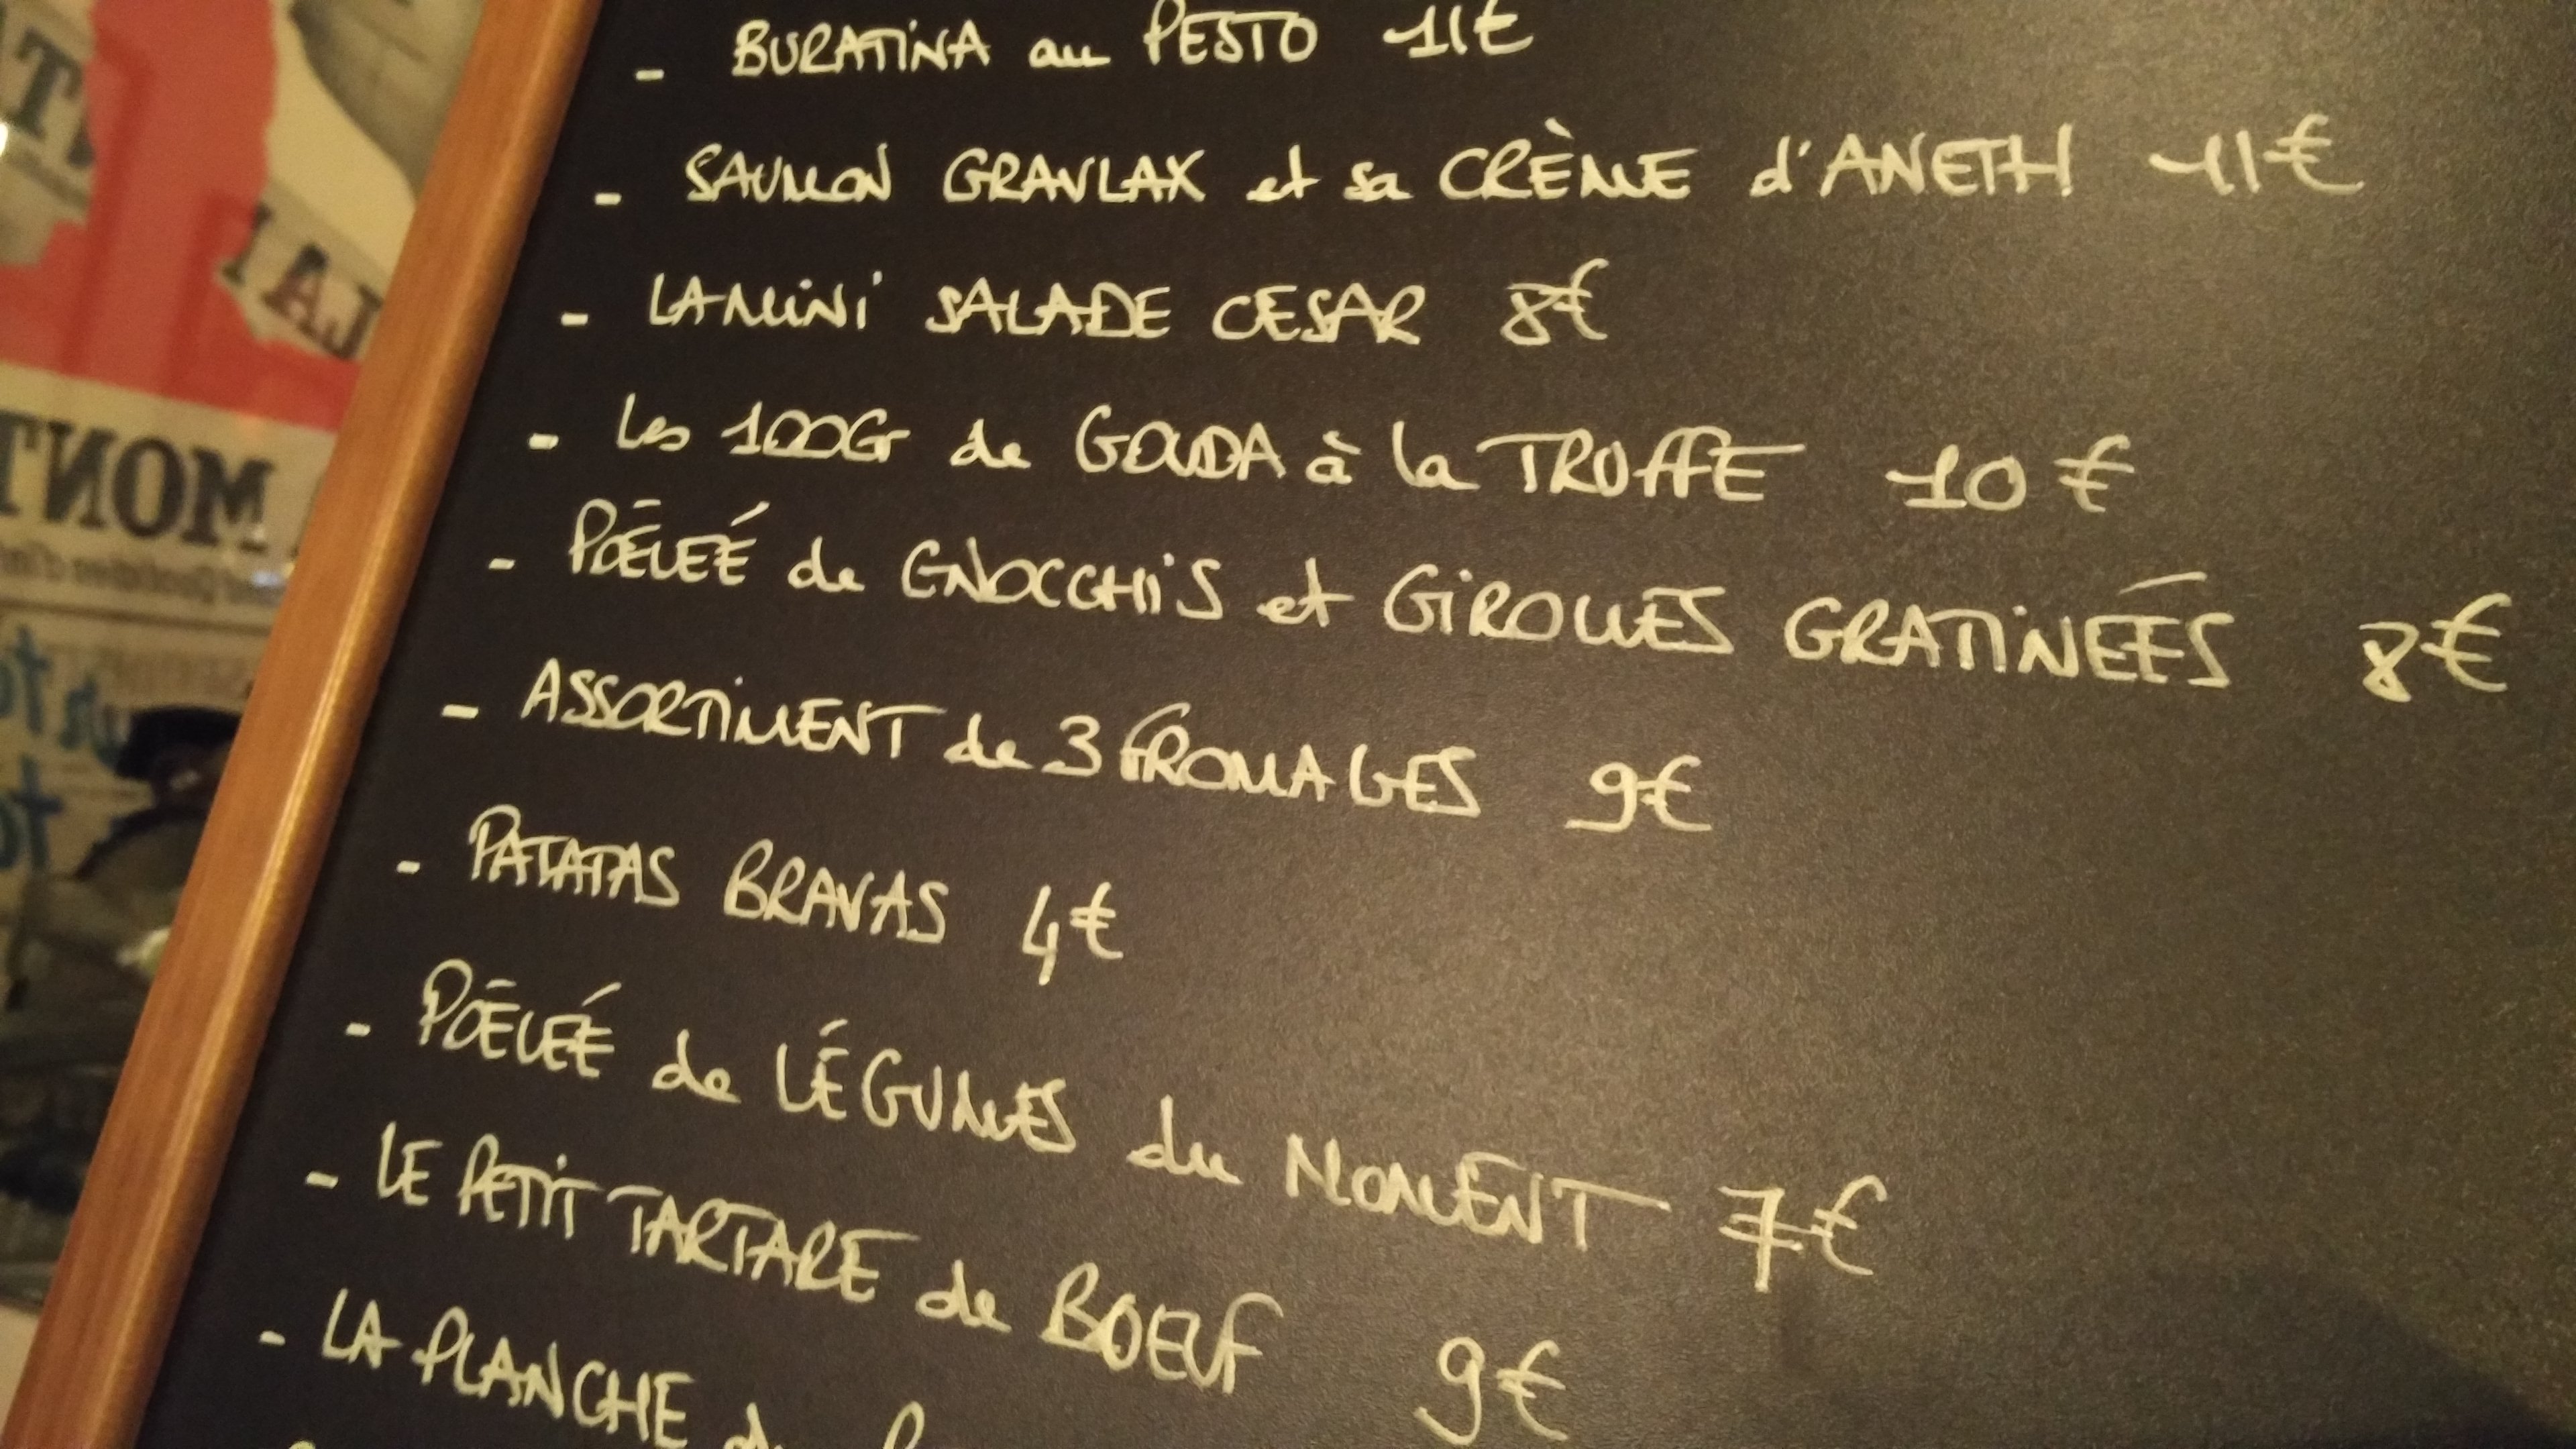 - BURATINA au PESTO 11€
- SAUMON GRAVLAX et sa CRÈME d'ANETH 11€
- LA MINI SALADE CESAR 8€
- Les 100Gr de GOUDA à la TRUFFE 10€
- POÊLEÉ de GNOCCHIS et GIROLLES GRATINÉES 8€
- ASSORTIMENT de 3 FROMAGES 9€
- PATATAS BRAVAS 4€
- POÊLEÉ de LÉGUMES du MOMENT 7€
- LE PETIT TARTARE de BOEUF 9€
- LA PLANCHE
LA
MONT